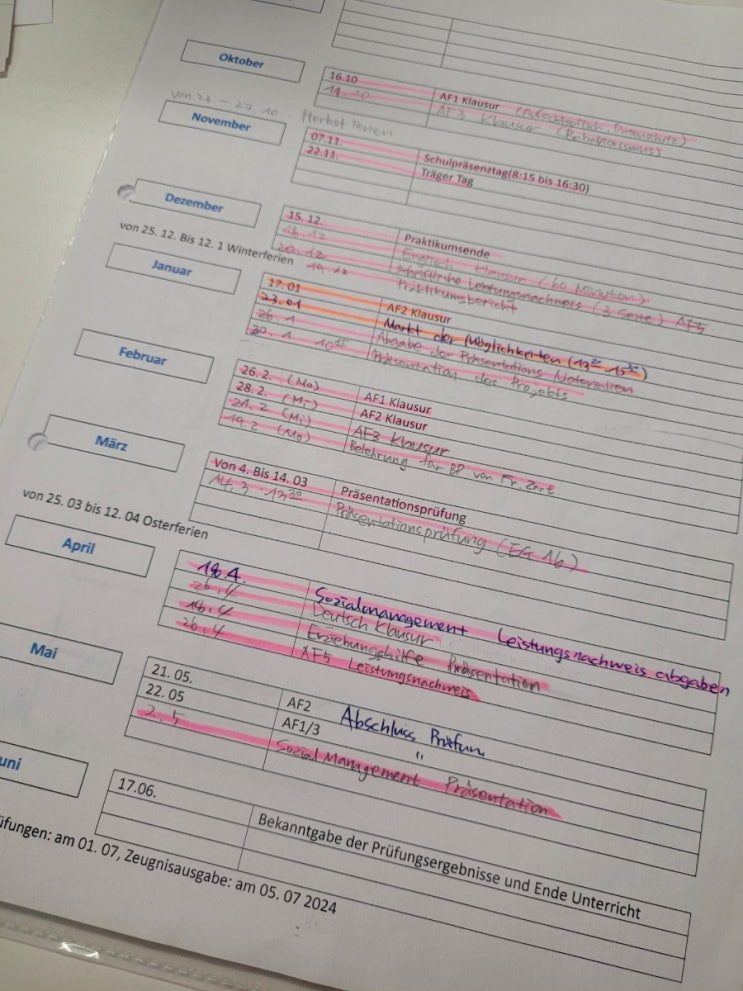 Oktober
16.10 AF1 Klausur
19.10 AF3 Klausur (Behaviorismus)
von 23 – 27.10 Herbst Ferien
November
07.11. Schulpräsenztag(8:15 bis 16:30)
22.11. Träger Tag
Dezember
15. 12. Praktikumsende
Englisch Klausur (60 Minuten)
20.12 schriftliche Leistungsnachweis (3 Seite) AF5
19.12 Praktikumsbericht
von 25. 12. Bis 12. 1 Winterferien
Januar
17.01 AF2 Klausur
23.01 Markt der Möglichkeiten (13³⁰ 15³⁰)
26.1 Abgabe der Präsentations Materialien
30.1 10⁴⁵ Präsentation des Projekts
Februar
26.2. (Mo) AF1 Klausur
28.2. (Mi) AF2 Klausur
21.2 (Mi) AF3 Klausur
19.2 (Mo) Belehrung für BP von Fr.
März
Von 4. Bis 14. 03 Präsentationsprüfung
14.3 13³⁰ Präsentationsprüfung (EG 16)
von 25. 03 bis 12. 04 Osterferien
April
18.4. Sozialmanagement Leistungsnachweis abgeben
26.4 Deutsch Klausur
18.4 Erziehungshilfe Präsentation
26.4 AF5 Leistungsnachweis
Mai
21. 05. AF2 Abschluss Prüfung
22. 05 AF1/3 "
2.5 Sozial Management Präsentation
uni
17.06. Bekanntgabe der Prüfungsergebnisse und Ende Unterricht
üfungen: am 01. 07, Zeugnisausgabe: am 05. 07 2024